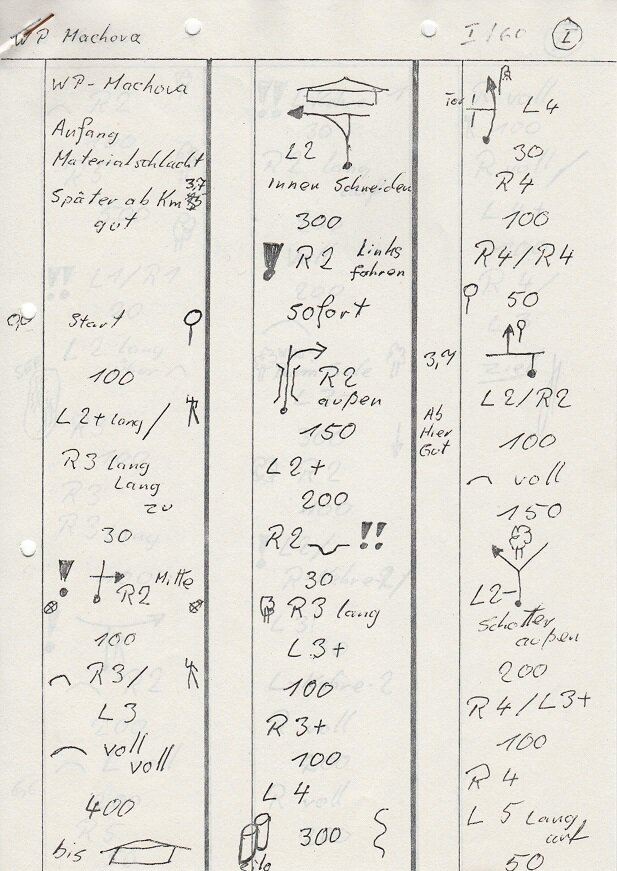 WP Machova
I/60 I
WP-Machova
Anfang
Materialschlacht
3,7
Später ab Km
gut
0,0 Start
100
L2+ lang/
R3 lang
Lang
zu
30
! R2 Mitte
100
R3/
L3
voll
voll
400
bis
L2
innen Schneiden
300
! R2 Links
fahren
sofort
R2
außen
150
L2+
200
R2 !!
30
R3 lang
L3+
100
R3+
100
L4
300
Silo
Tor L4
30
R4
100
R4/R4
50
3,7
L2/R2
Ab
Hier
Gut
100
voll
150
L2-
Schotter
außen
200
R4/L3+
100
R4
L5 Lang
auf
50